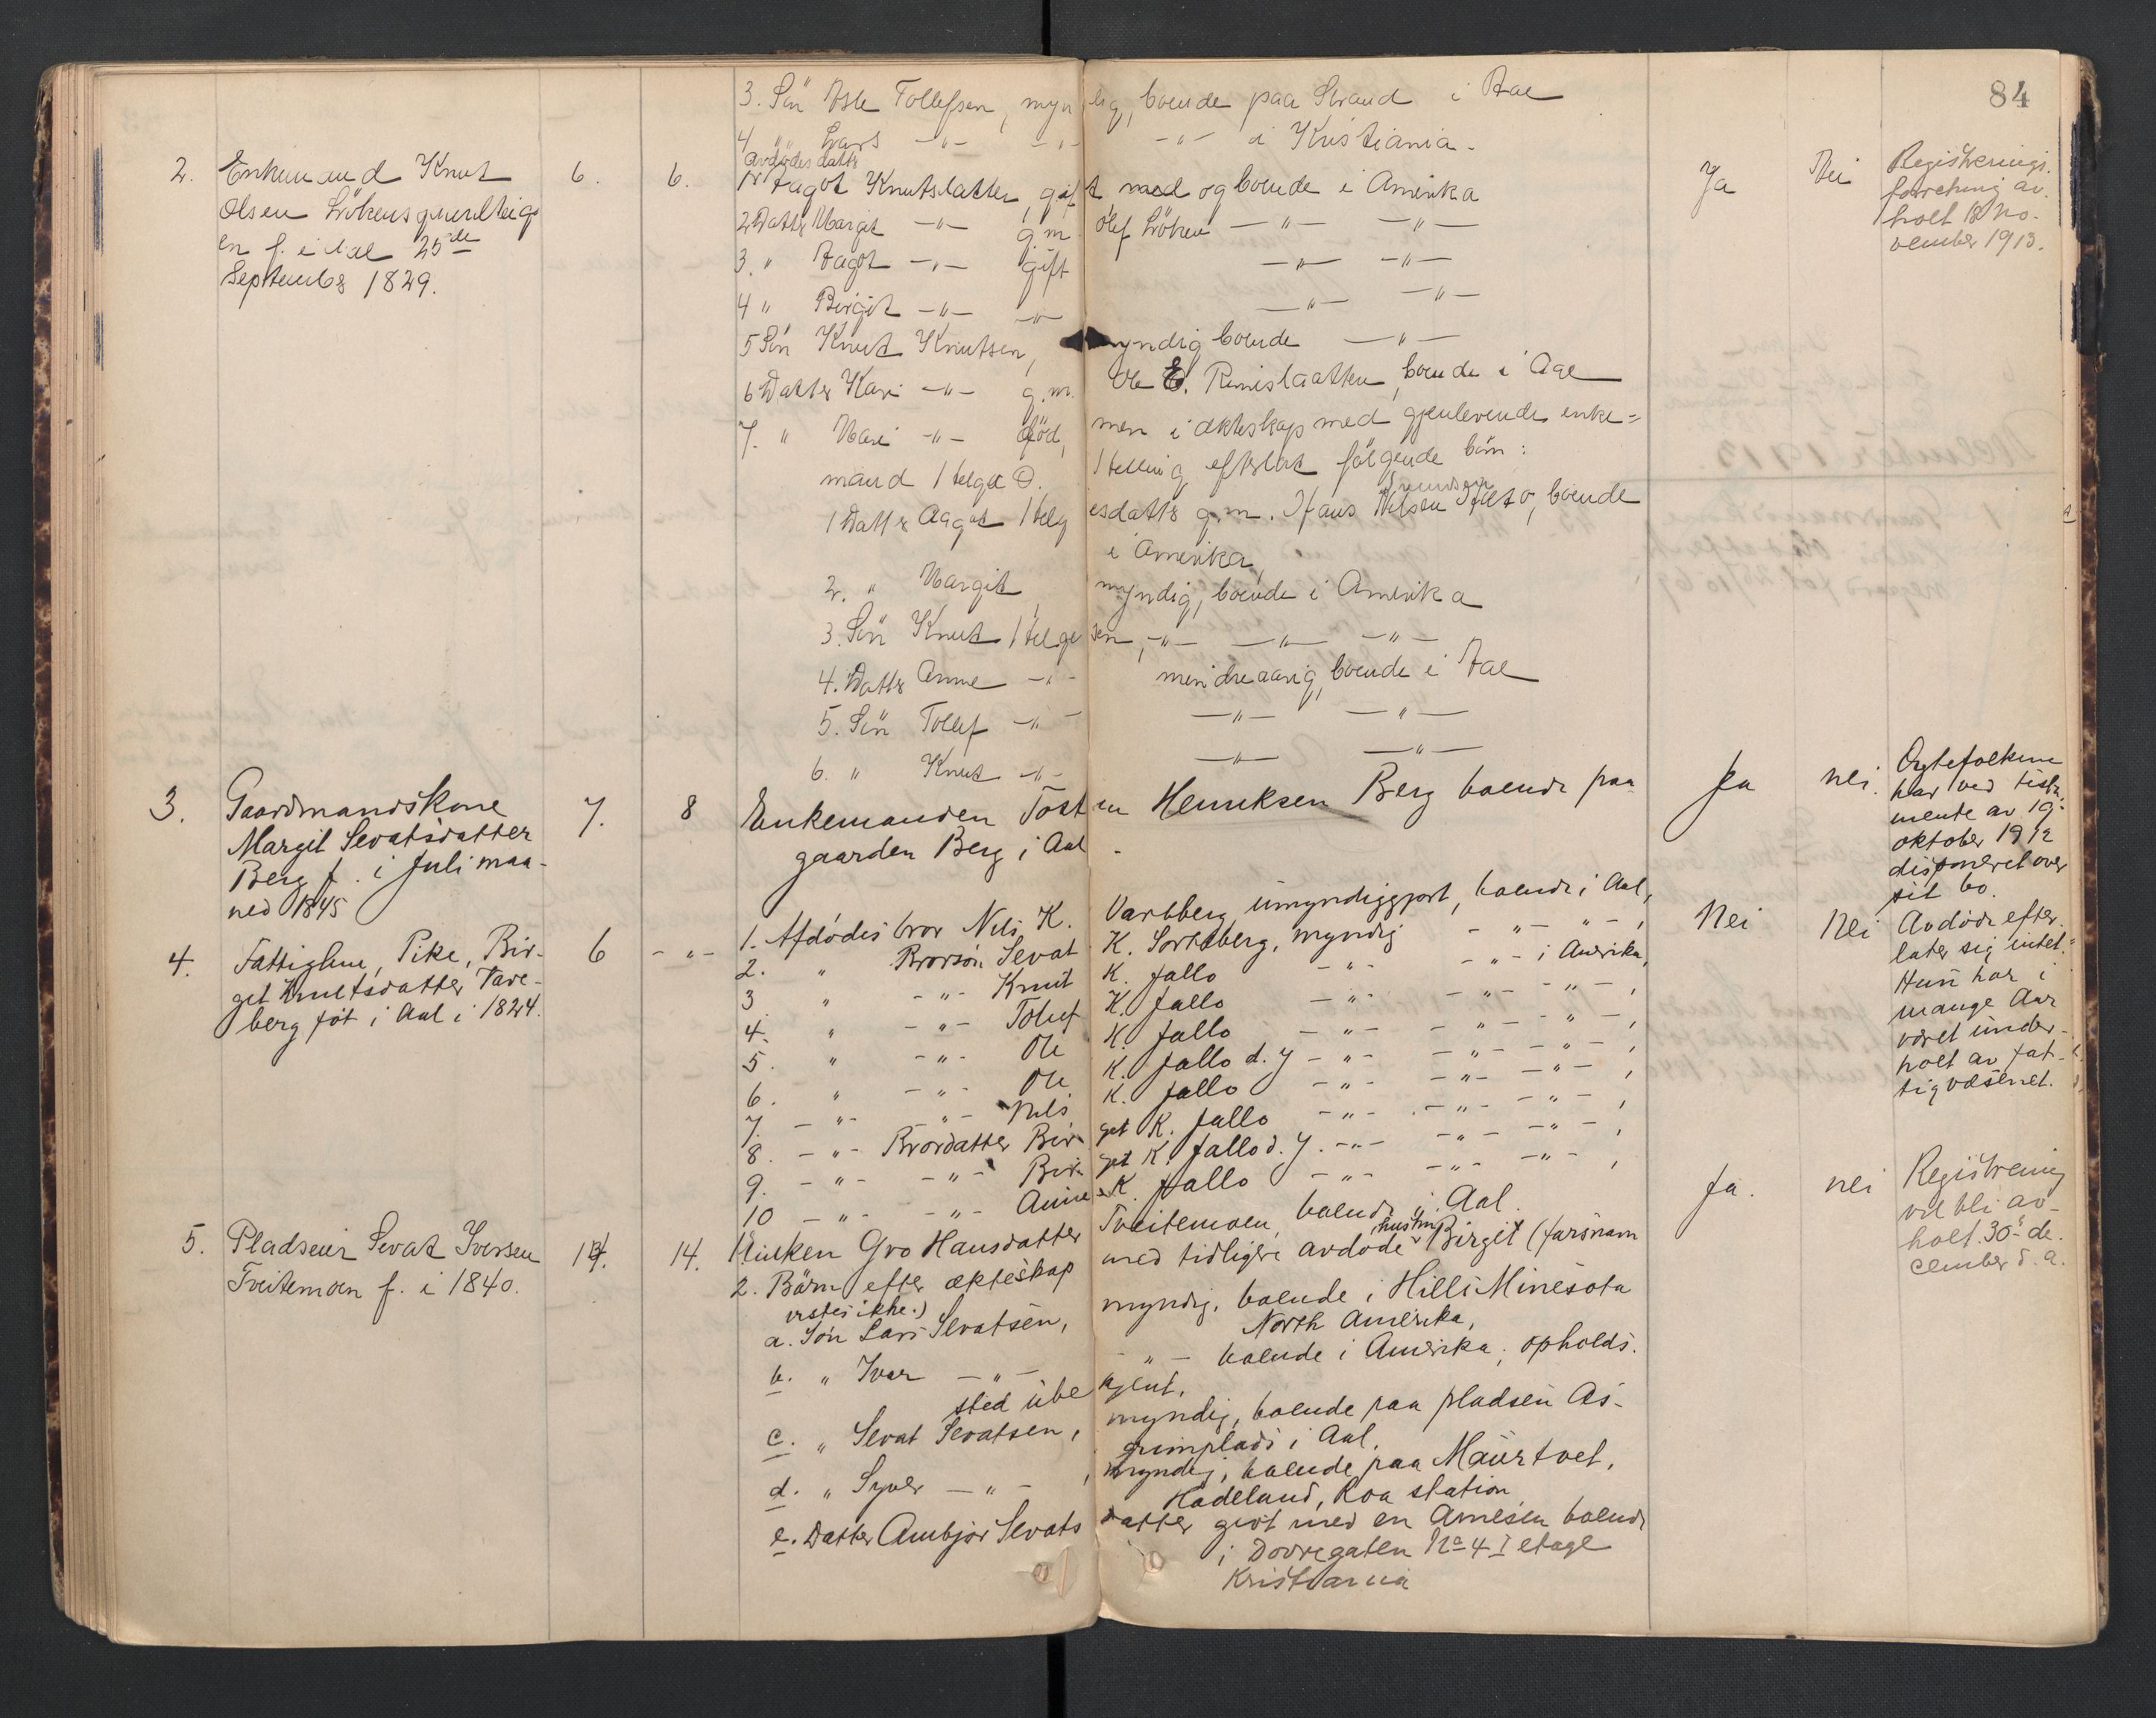 84
3. Søn Asle Tollefsen, myndig, boende paa Strand i Aal
4 „ Lars -„- -„- -„- i Kristiania.
2. Enkemand Knut
Olsen Lökensgaard
en f. i Aal 25de
Septembr 1829.
6. 6.
Avdødes dattr
1. Aagot Knutsdatter, gift med og boende i Amerika
2 Dattr Margit -„- g.m. Olef Löken -„- -„-
3. „ Aagot -„- gift -„- -„-
4 „ Birgit -„- -„- -„- -„-
5 Søn Knut Knutsen, myndig boende -„-
6 Datter Kari -„- g.m. Ole E. boende i Aal
7. „ Mari -„- död, men i ekteskap med gjenlevende enke=
mand Helge O. Helling efterlat følgende börn:
1 Dattr Aagot Helgesdattr g.m. Hans Nilsen boende
i Amerika,
2. „ Margit, myndig, boende i Amerika
3. Søn Knut Helgesen, -„- -„- -„-
4. Dattr Anne -„- mindreaarig, boende i Aal
5. Søn Tollef -„- -„- -„-
6. „ Knut -„- -„- -„-
Ja Nei
Registrerings.
forretning av.
holt 18 No-
vember 1913.
3. Gaardmandskone
Margit Sevatsdatter
Berg f. i Juli maa-
ned 1845
7. 8
Enkemanden Tosten Henriksen Berg boende paa
gaarden Berg i Aal.
Ja nei.
Egtefolkene
har ved testa-
mente av 19.
oktober 1912
disponeret over
sit bo.
4. Fattiglem, Pike, Bir-
get Knutsdatter Vare-
berg føt i Aal i 1824.
6 -„-
1. Afdødes bror Nils K. Varhberg, umyndiggjort, boende i Aal,
2. „ Brorsøn Sevat K. Sorteberg, myndig -„- -„-,
3 „ -„- Knut K. Jallo -„- -„- i Amerika,
4. „ -„- Toluf K. Jallo -„- -„- -„-,
5. „ -„- Ole K. Jallo -„- -„- -„-,
6. „ -„- Ole K. Jallo d. y. -„- -„- -„-,
7. -„- -„- Nils K. Jallo -„- -„- -„-,
8. -„- Brordatter Birget K. Jallo -„- -„- -„-,
9. -„- -„- Birget K. Jallo d. y. -„- -„- -„-,
10 -„- -„- Anne K. Jallo -„- -„- -„-,
Nei Nei
Avdøde efter.
later sig intet.
Hun har i
mange Aar
været under-
holt av fat-
tigvæsenet.
5. Pladseier Sevat Iversen
Tveitemoen f. i 1840.
14.
1 Enken Gro Hansdatter Tveitemoen, boende i Aal.
2. Børn efter ækteskap med tidligere avdøde hustru Birgit (farsnavn
vides ikke.)
a. Søn Lars Sevatsen, myndig, boende i Hills Minesota
North Amerika,
b. „ Iver -„- -„- boende i Amerika, opholds.
sted ubekjent.
c. „ Sevat Sevatsen, myndig, boende paa pladsen As-
grimplads i Aal.
d. „ Syver -„-, myndig, boende paa Maurtvet,
Hadeland, Roa station
e. Datter Ambjør Sevatsdatter givt med en Arnesen boende
i Dovregaten No 4 I etage
Kristiania
Ja. nei
Registrering
vil bli av-
holt 30. de.
cember d. a.